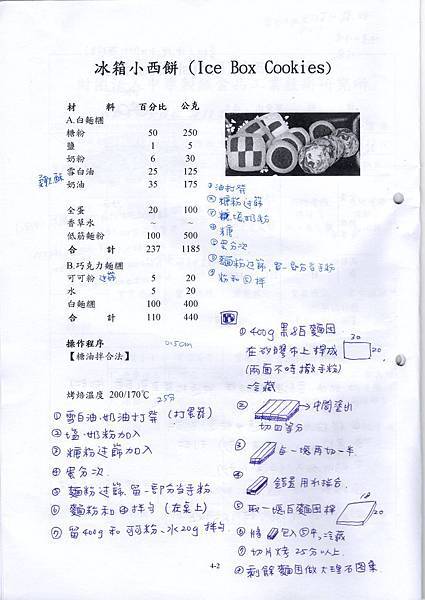 冰箱小西餅 (Ice Box Cookies)
材 料 百分比 公克
A.白麵糰
糖粉 50 250
鹽 1 5
奶粉 6 30
雪白油 25 125
奶油 35 175
全蛋 20 100
香草水 ~ ~
低筋麵粉 100 500
合 計 237 1185
B.巧克力麵糰
可可粉 過篩 5 20
水 5 20
白麵糰 100 400
合 計 110 440
操作程序 0.5cm
【糖油拌合法】
烤焙溫度 200/170℃
25分
① 雪白油.奶油打發 (打蛋器)
② 塩.奶粉加入
③ 糖粉过篩加入
④ 蛋分次.
⑤ 麵粉过篩.留一部分当手粉
⑥ 麵粉和④拌勻 (在桌上)
⑦ 留400g和可可粉、水20g拌勻
油打發
糖粉过篩
糖塩奶粉
蛋分次
麵粉过篩,留一部分当手粉
粉和⑤拌
① 400g 黑&白麵团
在砂膠布上桿成
30
20
(兩面不時撒手粉)
冷藏
②
切四等分
③ 每一塊再切一半
④
⑤ 取一塊白麵团桿
20
⑥ 將 包入⑤中,冷藏
⑦ 切片烤25分以上.
⑧ 剩餘麵团做大理石图案.
4-2